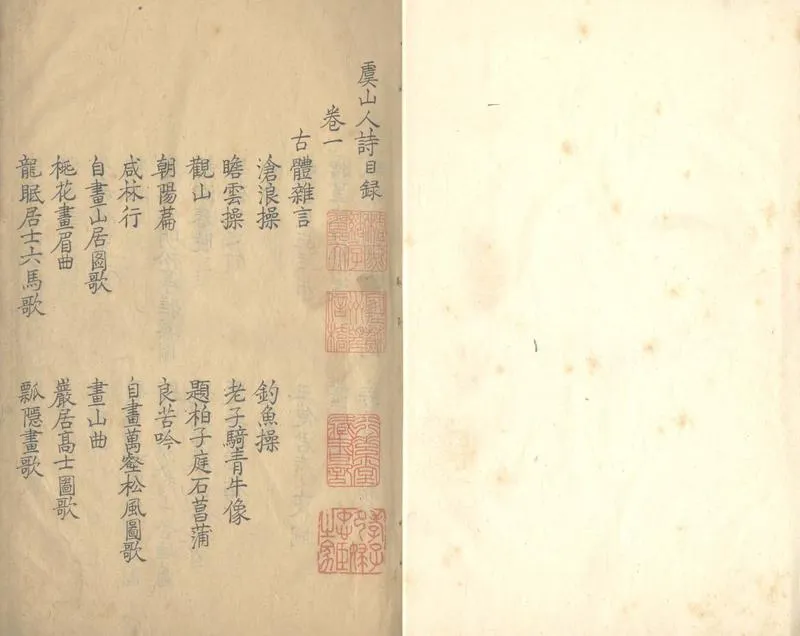 虞山人詩目録
卷一
古體雜言
滄浪操　釣魚操
瞻雲操　老子騎青牛像
觀山　題柏子庭石菖蒲
朝陽篇　良苦吟
咸林行　自畫萬壑松風圖歌
自畫山居圖歌　畫山曲
桃花畫眉曲　巖居高士圖歌
龍眠居士六馬歌　瓢隱畫歌